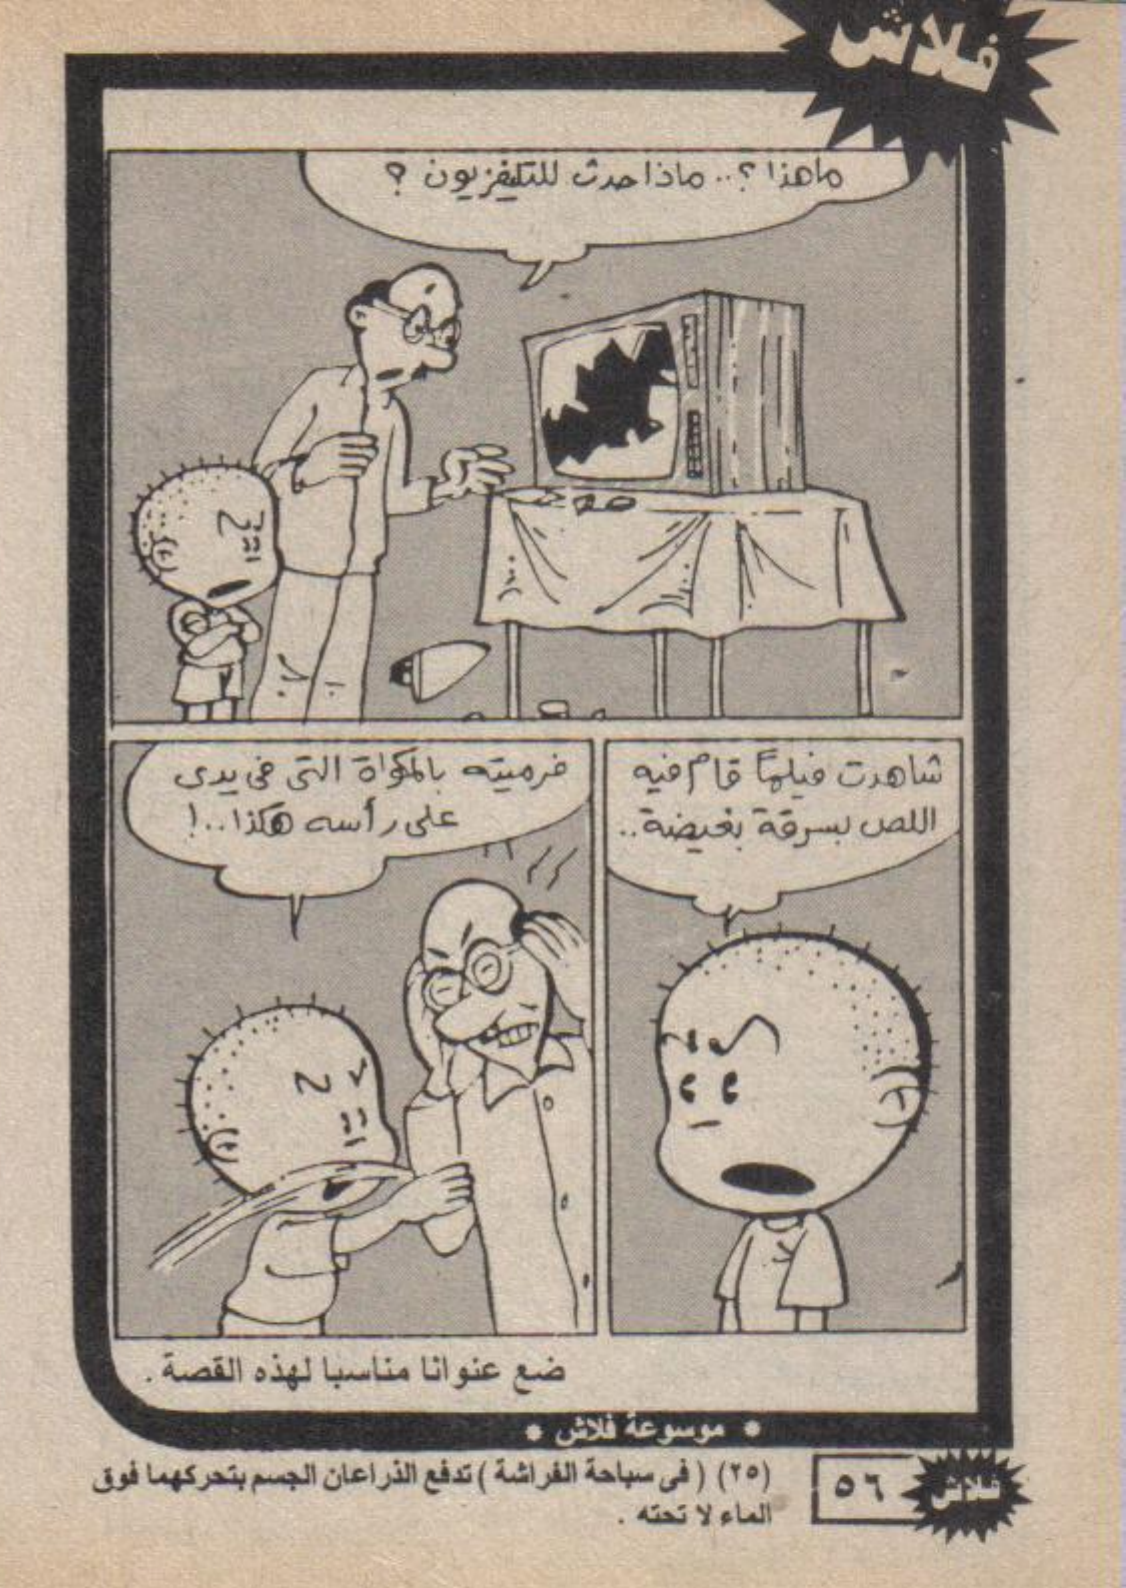 فلاش
ماهذا ؟.. ماذا حدث للتليفزيون ؟
شاهدت فيلماً قام فيه
اللص بسرقة بغيضة..
فرميته بالمكواة التى فى يدى
على رأسه هكذا..!
ضع عنوانا مناسبا لهذه القصة .
* موسوعة فلاش *
(٢٥) ( فى سباحة الفراشة ) تدفع الذراعان الجسم بتحركهما فوق
الماء لا تحته .
٥٦
فلاش